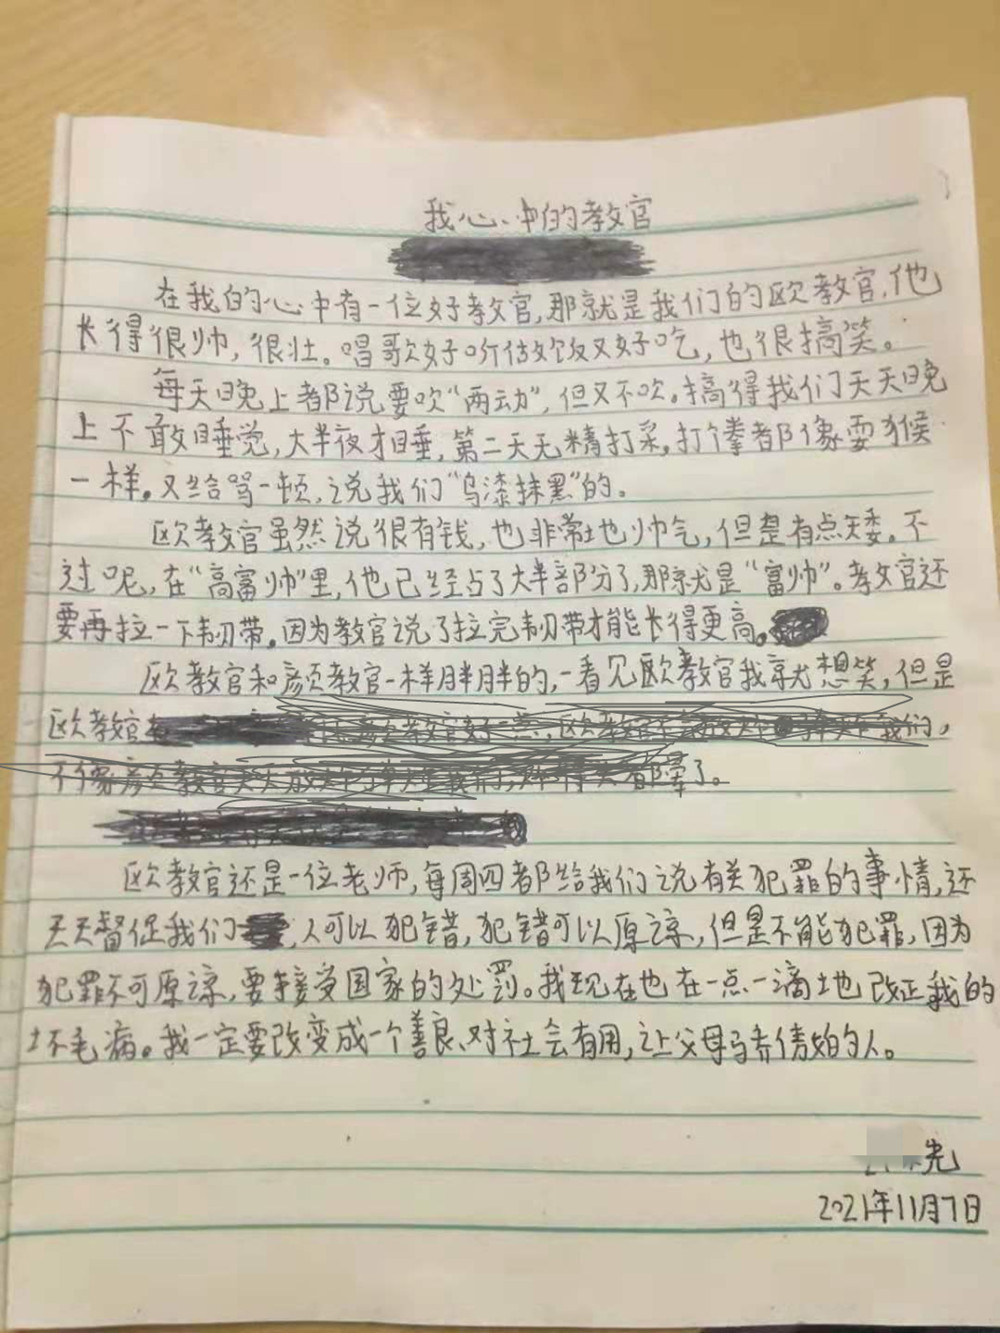 我心中的教官
在我的心中有一位好教官,那就是我们的欧教官,他
长得很帅,很壮。唱歌好听做饭又好吃,也很搞笑。
每天晚上都说要吹“两动”,但又不吹。搞得我们天天晚
上不敢睡觉,大半夜才睡,第二天无精打采。打个拳都像耍猴
一样。又给骂一顿,说我们“乌漆抹黑”的。
欧教官虽然说很有钱,也非常地帅气,但是有点矮。不
过呢,在“高富帅”里,他已经占了大半部分了,那就是“富帅”。教官还
要再拉一下韧带。因为教官说了拉完韧带才能长得更高。
欧教官和彦页教官一样胖胖的,一看见欧教官我就想笑,但是
欧教官 我们,
不像 教官天天 都晕了。
欧教官还是一位老师,每周四都给我们说有关犯罪的事情,还
天天督促我们 ,人可以犯错,犯错可以原谅,但是不能犯罪,因为
犯罪不可原谅,要接受国家的处罚。我现在也在一点一滴地改正我的
坏毛病。我一定要改变成一个善良、对社会有用,让父母骄傲的人。
光
2021年11月7日